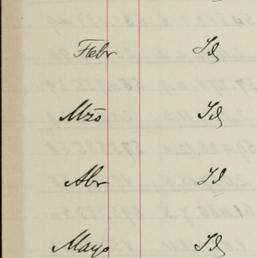 Febr Id
Mzo Id
Abr Id
Mayo Id